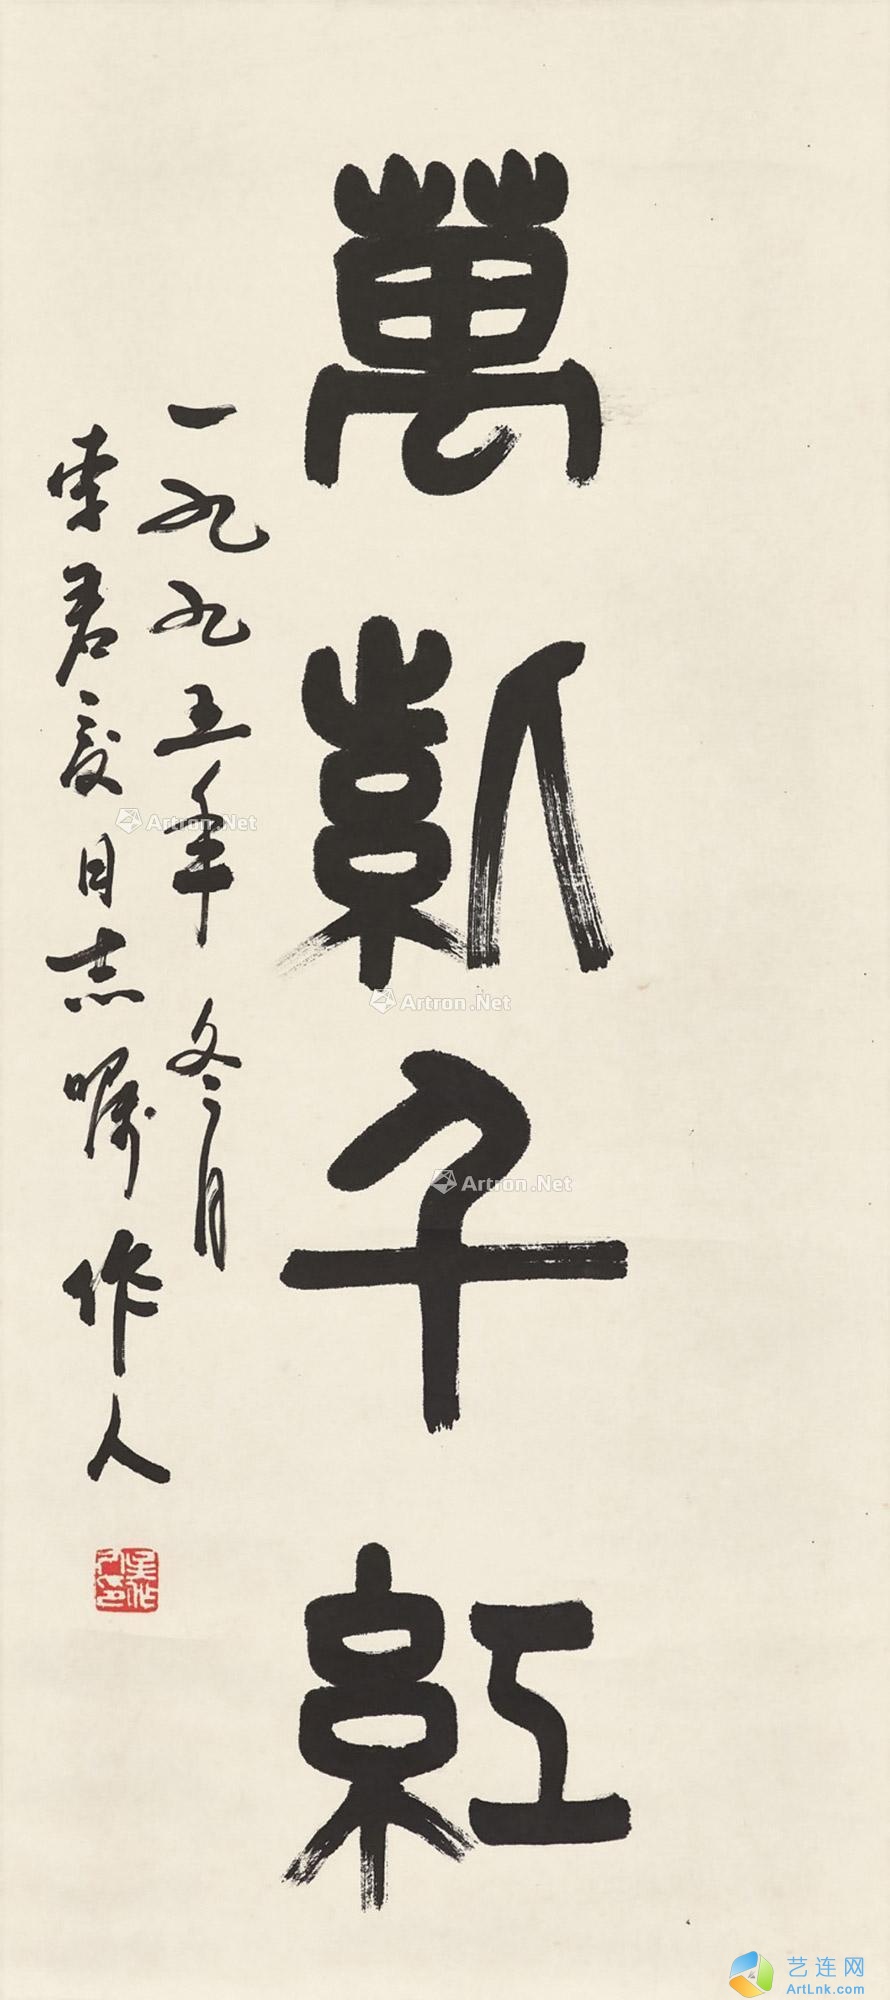 萬紫千紅
一九九五年冬月
君 同志嘱 作人
吴作人印
Artron.Net
Artron.Net
Artron.Net
艺连网
ArtLnk.com